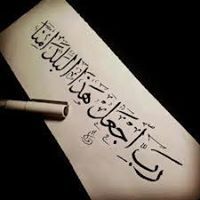 رَبِّ اجْعَلْ هَذَا الْبَلَدَ آمِنًا